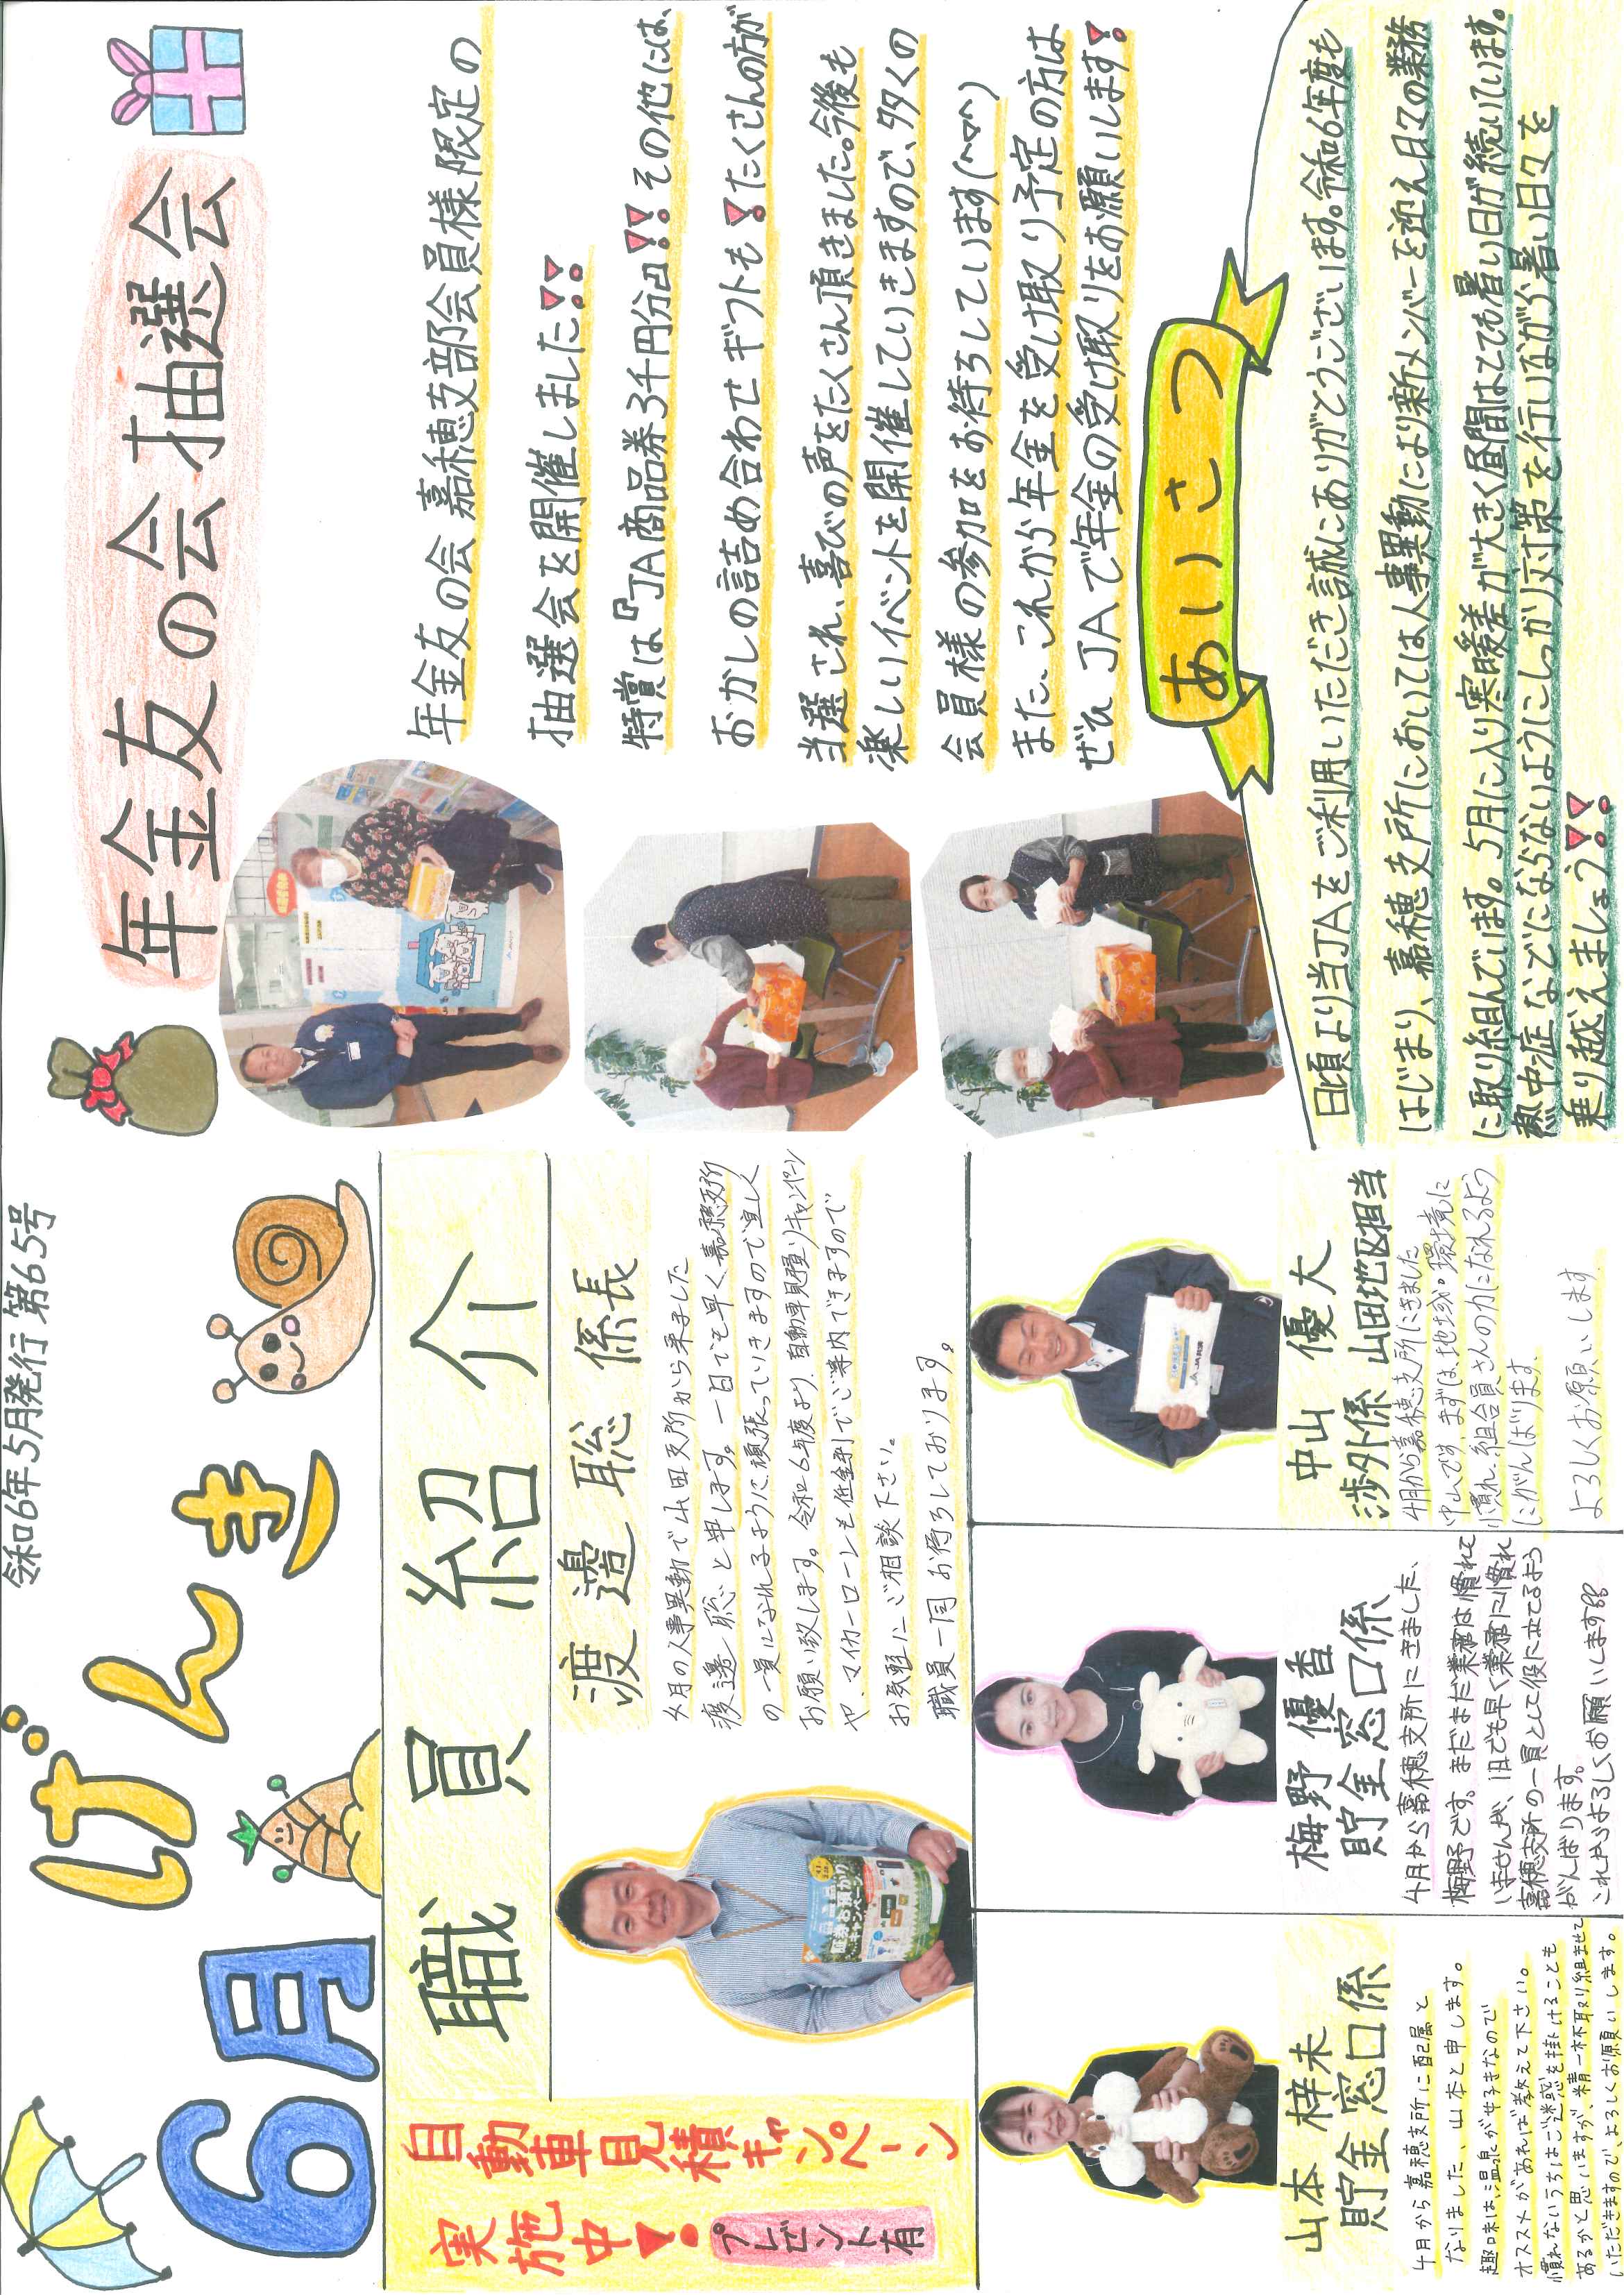 令和6年5月発行 第65号
6月 げんき
自動車見積キャンペーン
実施中!
プレゼント有
職員紹介
渡邊 聡 係長
4月の人事異動で山田支所から来ました
渡邊 聡と申します。一日でも早く嘉穂支所
の一員になれるように頑張っていきますので宜しく
お願い致します。令和6年度より、自動車見積りキャンペーン
や、マイカーローンも低金利でご案内できますので
お気軽にご相談下さい。
職員一同お待ちしております。
山本 梓未
貯金窓口係
4月から嘉穂支所に配属と
なりました、山本と申します。
趣味は、温泉が好きなので
オススメがあれば教えて下さい。
慣れないうちはご迷惑を掛けることも
あるかと思いますが、精一杯取り組ませて
いただきますので、よろしくお願いします。
梅野 優香
貯金窓口係
4月から嘉穂支所にきました、
梅野です。まだまだ業務は慣れて
いませんが、1日でも早く業務に慣れ
嘉穂支所の一員として役に立てるよう
がんばります。
これからよろしくお願いします
中山 優大
渉外係 山田地区担当
4月から嘉穂支所にきました
中山です、まずは、地域・環境に
慣れ、組合員さんの力になれるよう
にがんばります、
よろしくお願いします
年金友の会抽選会
年金友の会 嘉穂支部会員様限定の
抽選会を開催しました!!
特賞は『JA商品券3千円分』!! その他には、
おかしの詰め合わせギフトも!たくさんの方が
当選され、喜びの声をたくさん頂きました。今後も
楽しいイベントを開催していきますので、多くの
会員様の参加をお待ちしています(^▽^)
また、これから年金を受け取り予定の方は
ぜひJAで年金の受け取りをお願いします!
あいさつ
日頃より当JAをご利用いただき誠にありがとうございます。令和6年度も
はじまり、嘉穂支所においては人事異動により新メンバーを迎え日々の業務
に取り組んでいます。5月に入り寒暖差が大きく昼間はとても暑い日が続いています。
熱中症などにならないようにしっかり対策を行いながら暑い日々を
乗り越えましょう!!